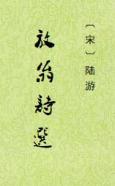 〔宋〕陆游
放翁詩選